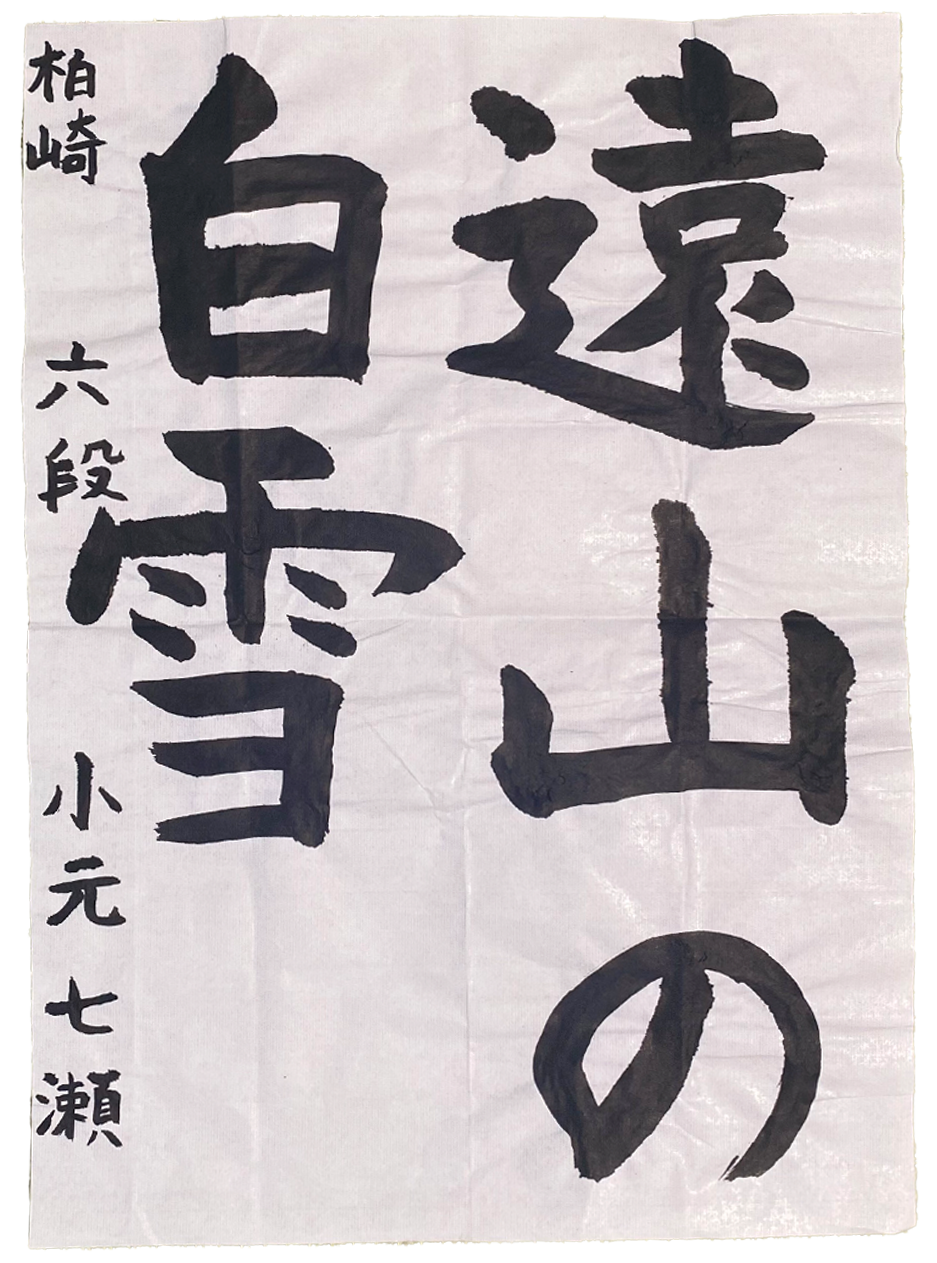 遠山の
白雪
柏崎 六段 小元 七瀬